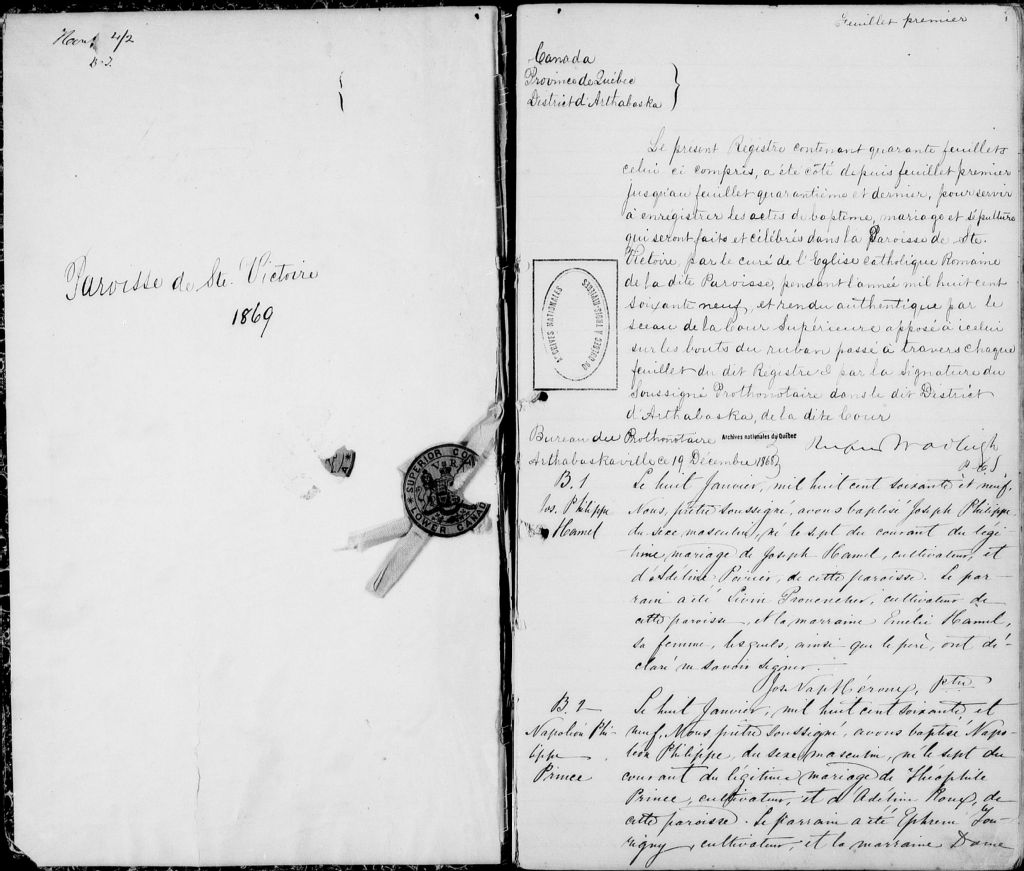 4/2
B.J.
Paroisse de Ste. Victoire
1869
SUPERIOR CO
V R
LOWER CANAD
Feuillet premier
Canada
Province de Québec
District d'Arthabaska
Le présent Registre contenant quarante feuillets
celui ci compris, a été côté depuis feuillet premier
jusqu'au feuillet quarantième et dernier, pour servir
à enregistrer les actes de baptême, mariage et sépulture
qui seront faits et célébrés dans la Paroisse de Ste.
Victoire, par le curé de l'Eglise Catholique Romaine
de la dite Paroisse, pendant l'année mil huit cent
soixante neuf, et rendu authentique par le
sceau de la Cour Supérieure apposé à icelui
sur les bouts du ruban passé à travers chaque
feuillet du dit Registre & par la Signature du
Soussigné Prothonotaire dans le dit District
d'Arthabaska, de la dite Cour
ARCHIVES NATIONALES
DU QUÉBEC À TROIS-RIVIÈRES
Bureau du Prothonotaire
Archives nationales du Québec
Arthabaskaville ce 19 Décembre 1868
P.C.S
B. 1
Jos. Philippe
Hamel
Le huit Janvier, mil huit cent soixante et neuf,
Nous, prêtre soussigné, avons baptisé Joseph Philippe
du sexe masculin, né le sept du courant du légi
time mariage de Joseph Hamel, cultivateur, et
d'Adéline Poirier, de cette paroisse. Le par-
rain a été Livin Provencher, cultivateur de
cette paroisse, et la marraine Emélie Hamel,
sa femme, lesquels, ainsi que le père, ont dé-
claré ne savoir signer.
Jos. Nap. Héroux, Ptre
B. 2
Napoléon Phi-
lippe
Prince
Le huit Janvier, mil huit cent soixante, et
neuf, Nous prêtre soussigné, avons baptisé Napo-
léon Philippe, du sexe masculin, né le sept du
courant du légitime mariage de Théophile
Prince, cultivateur, et d'Adéline Roux, de
cette paroisse. Le parrain a été Ephrem Tou-
rigny, cultivateur, et la marraine Dame